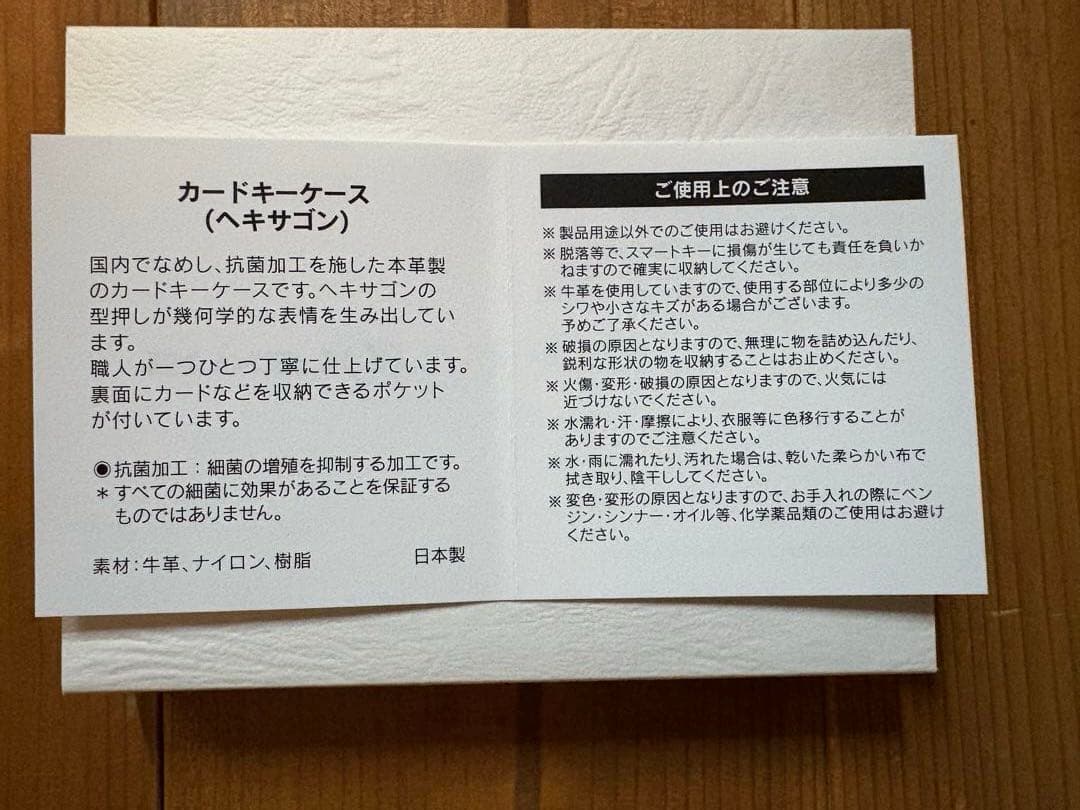 カードキーケース
（ヘキサゴン）
国内でなめし、抗菌加工を施した本革製
のカードキーケースです。ヘキサゴンの
型押しが幾何学的な表情を生み出してい
ます。
職人が一つひとつ丁寧に仕上げています。
裏面にカードなどを収納できるポケット
が付いています。
◉抗菌加工：細菌の増殖を抑制する加工です。
＊すべての細菌に効果があることを保証する
ものではありません。
素材：牛革、ナイロン、樹脂 日本製
ご使用上のご注意
※ 製品用途以外でのご使用はお避けください。
※ 脱落等で、スマートキーに損傷が生じても責任を負いか
ねますので確実に収納してください。
※ 牛革を使用していますので、使用する部位により多少の
シワや小さなキズがある場合がございます。
予めご了承ください。
※ 破損の原因となりますので、無理に物を詰め込んだり、
鋭利な形状の物を収納することはお止めください。
※ 火傷・変形・破損の原因となりますので、火気には
近づけないでください。
※ 水濡れ・汗・摩擦により、衣服等に色移行することが
ありますのでご注意ください。
※ 水・雨に濡れたり、汚れた場合は、乾いた柔らかい布で
拭き取り、陰干ししてください。
※ 変色・変形の原因となりますので、お手入れの際にベン
ジン・シンナー・オイル等、化学薬品類のご使用はお避け
ください。